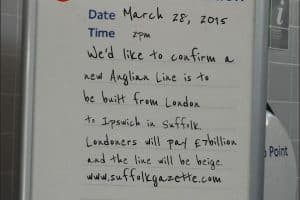 Date March 28, 2015
Time 2pm
We'd like to confirm a
new Anglian Line is to
be built from London
to Ipswich in Suffolk.
Londoners will pay £7billion
and the line will be beige.
www.suffolkgazette.com
Point